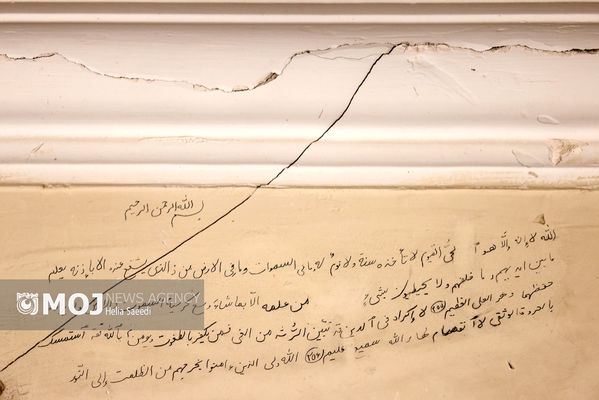 بسم الله الرحمن الرحیم
الله لا إله إلّا هو الحی القیوم لا تأخذه سنة ولا نومٌ له ما فی السموات وما فی الارض من ذ الذی یشفع عنده الا باذنه یعلم
ما بین ایدیهم و ما خلفهم ولا یحیطون بشیءٍ من علمه الّا بما شاء
حفظهما و هو العلی العظیم (۲۵۵) لا إکراه فی الدین قد تبیّن الرشد من الغی فمن یکفر بالطغوت ویومن بالله فقد استمسک
بالعروة الوثقی لا انفصام لها والله سمیع علیم (۲۵۶) الله ولی الذین ءامنوا یخرجهم من الظلمت إلی النّور
MOJ NEWS AGENCY
Helia Saeedi